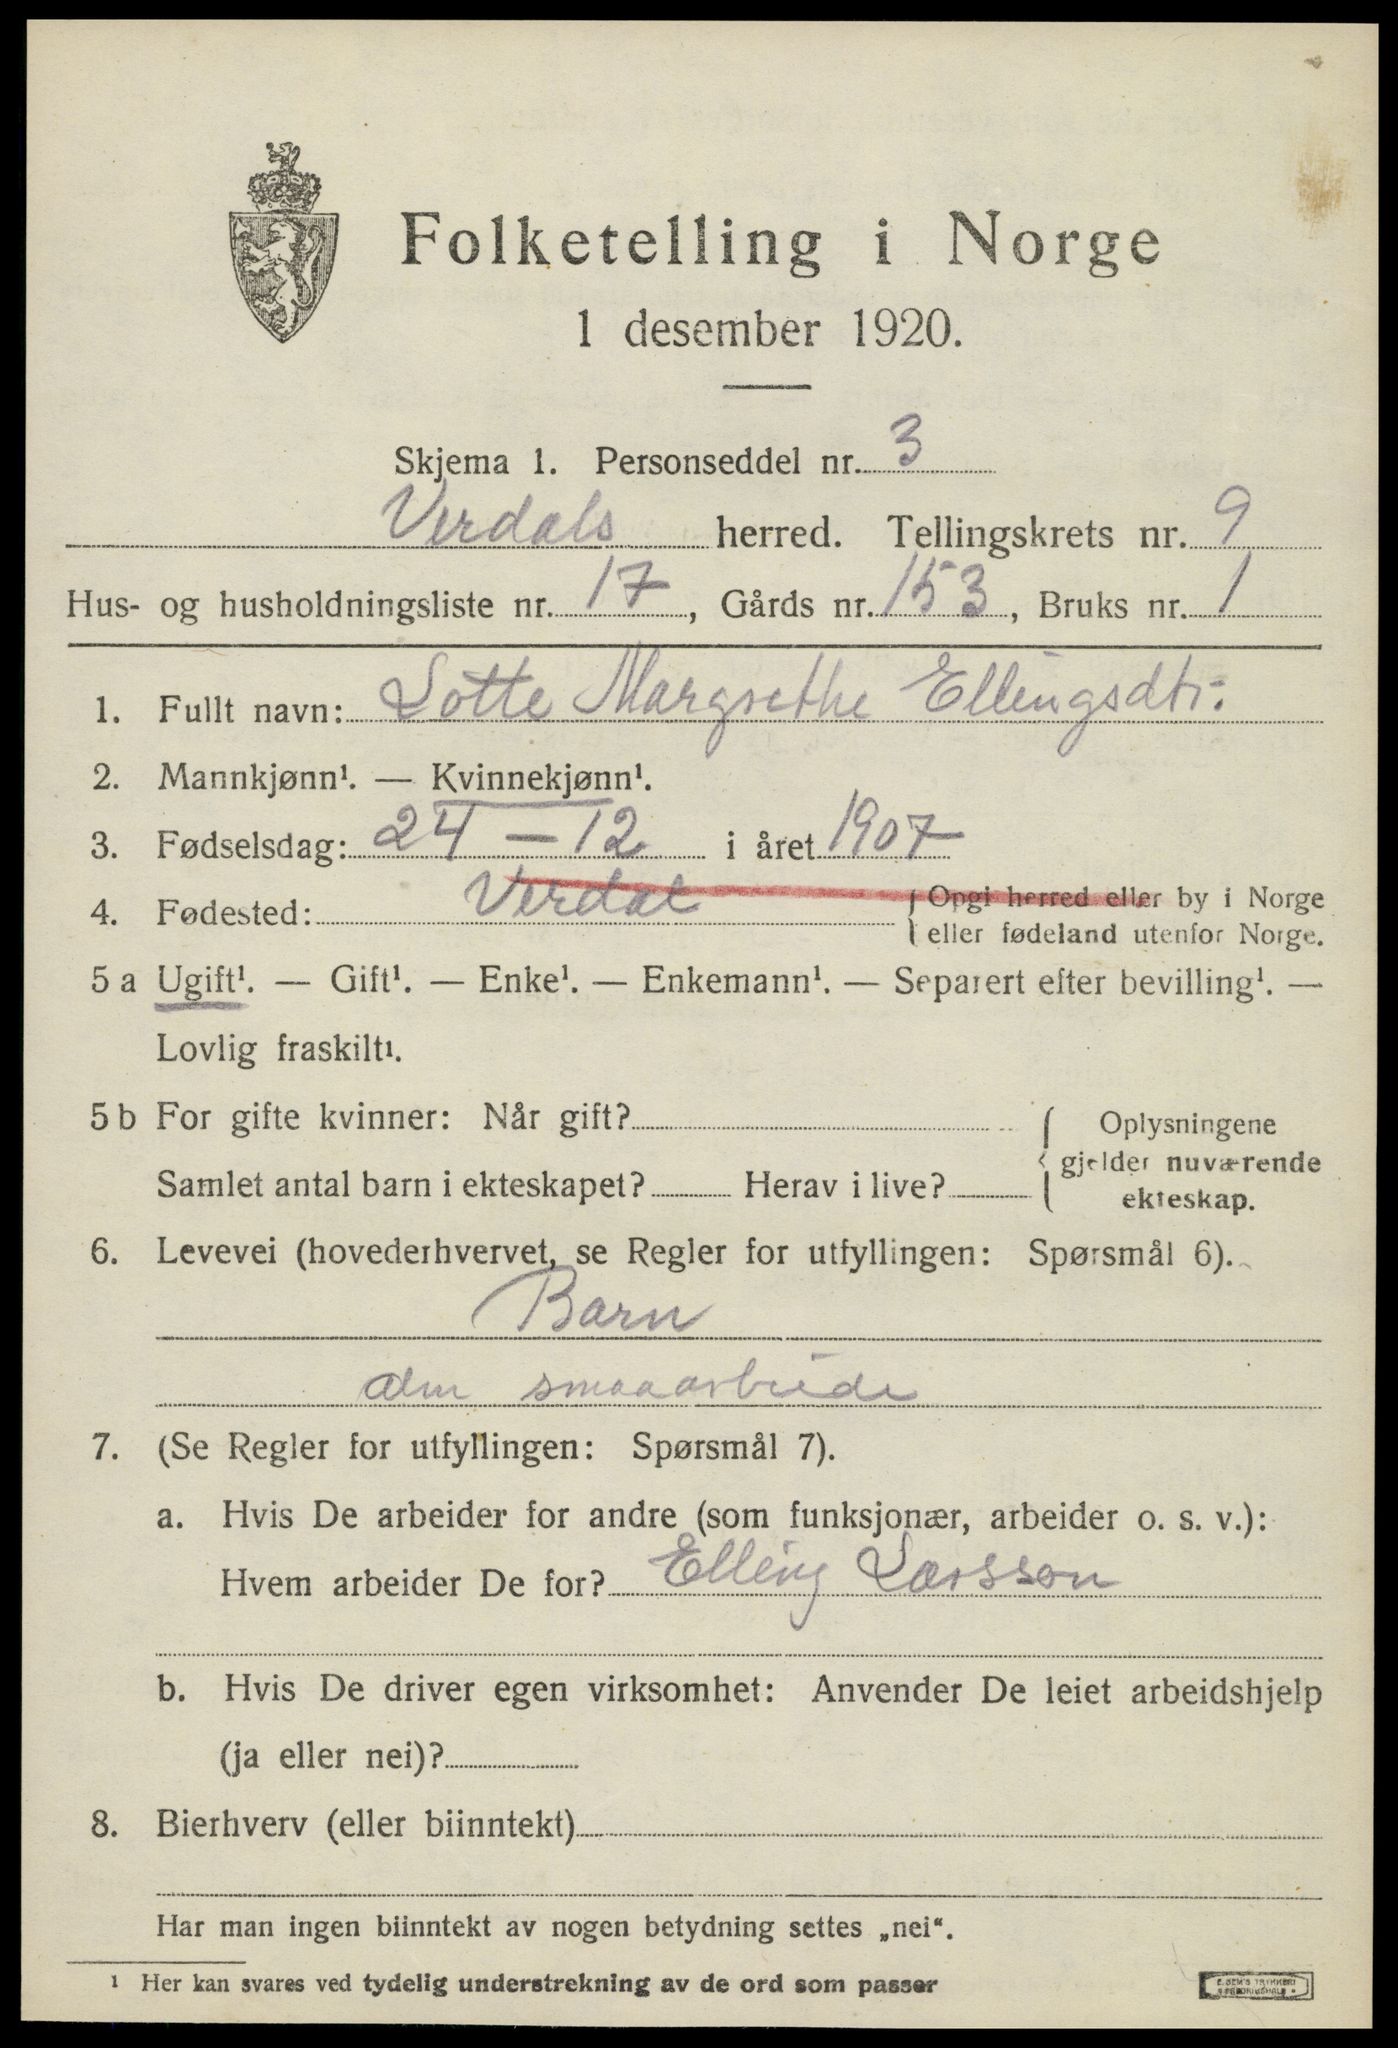 Folketelling i Norge
1 desember 1920.
Skjema 1. Personseddel nr. 3
Verdals herred. Tellingskrets nr. 9
Hus- og husholdningsliste nr. 17, Gårds nr. 153, Bruks nr. 1
1. Fullt navn: Lotte Margrethe Ellingsdtr.
2. Mannkjønn¹. — Kvinnekjønn¹.
3. Fødselsdag: 24 — 12 i året 1907
4. Fødested: Verdal { Opgi herred eller by i Norge
eller fødeland utenfor Norge.
5 a Ugift¹. — Gift¹. — Enke¹. — Enkemann¹. — Separert efter bevilling¹. —
Lovlig fraskilt¹.
5 b For gifte kvinner: Når gift?
Samlet antal barn i ekteskapet? Herav i live?
{ Oplysningene
gjelder nuværende
ekteskap.
6. Levevei (hovederhvervet, se Regler for utfyllingen: Spørsmål 6).
Barn
alm smaaarbeide
7. (Se Regler for utfyllingen: Spørsmål 7).
a. Hvis De arbeider for andre (som funksjonær, arbeider o. s. v.):
Hvem arbeider De for? Elling Larsson
b. Hvis De driver egen virksomhet: Anvender De leiet arbeidshjelp
(ja eller nei)?
8. Bierhverv (eller biinntekt)
Har man ingen biinntekt av nogen betydning settes „nei“.
¹ Her kan svares ved tydelig understrekning av de ord som passer